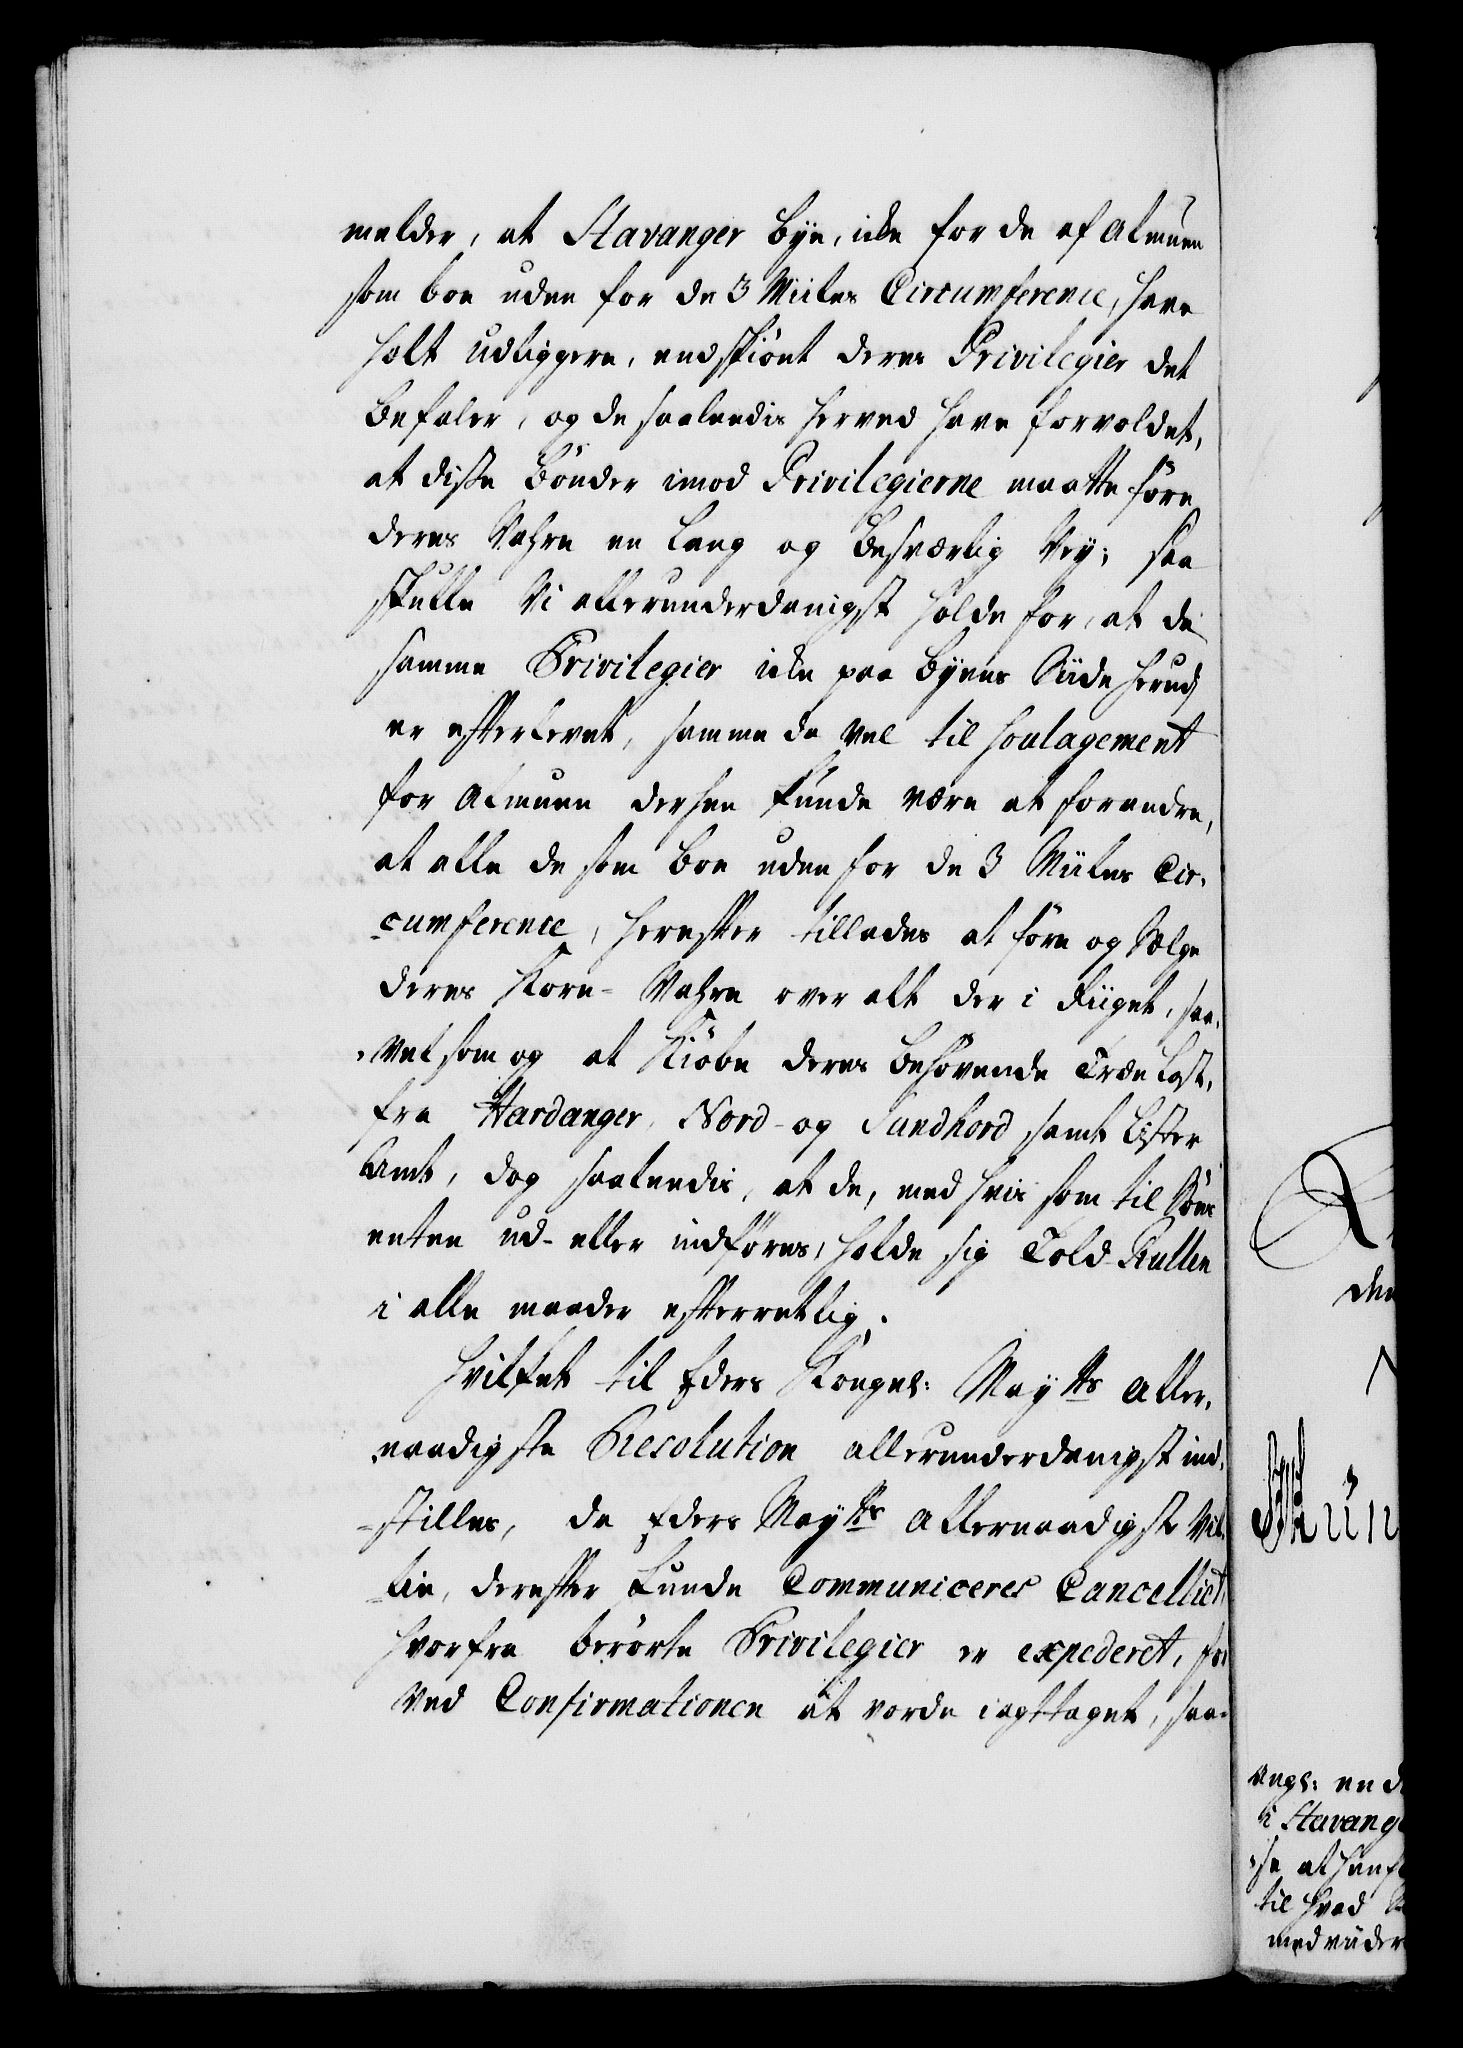 melder, at Stavanger bye, icke for de af Almuen
som boe uden for de 3 Miiles Circumference, have
holt udliggere, endskiönt deres Privilegier det
befaler, og de saaledis herved have forvoldet,
at disse bönder imod Privilegierne maatte före
deres Vahre en lang og besværlig Vey; saa
skulle Vi allerunderdanigst holde for, at da
samme Privilegier icke paa byens Siide herudj
er efterlevet, samme da vel til soulagement
for Almuen derhen kunde være at forandre,
at alle de som boe uden for de 3 Miiles Cir-
cumference, herefter tillades at före og Sælge
deres Korn-Vahre over alt der i Riiget, saa-
vel som og at Kiöbe deres behövende Træ Last,
fra Hardanger, Nord- og Sundhord samt Lister
Amt, dog saaledis, at de, med hvis som til Søes
enten ud- eller indföres, holde sig Told-Rullen
i alle maader efterretlig.
Hvilket til Eders Kongel: Mayts Aller-
naadigste Resolution allerunderdanigst ind-
stilles, da Eders Mayts Allernaadigste Vil-
lie, derefter kunde Communiceres Cancelliet,
hvorfra berörte Privilegier er expederet, for
ved Confirmationen at vorde iagttaget, saa-
Ang: en d
i Stavang
til hvad